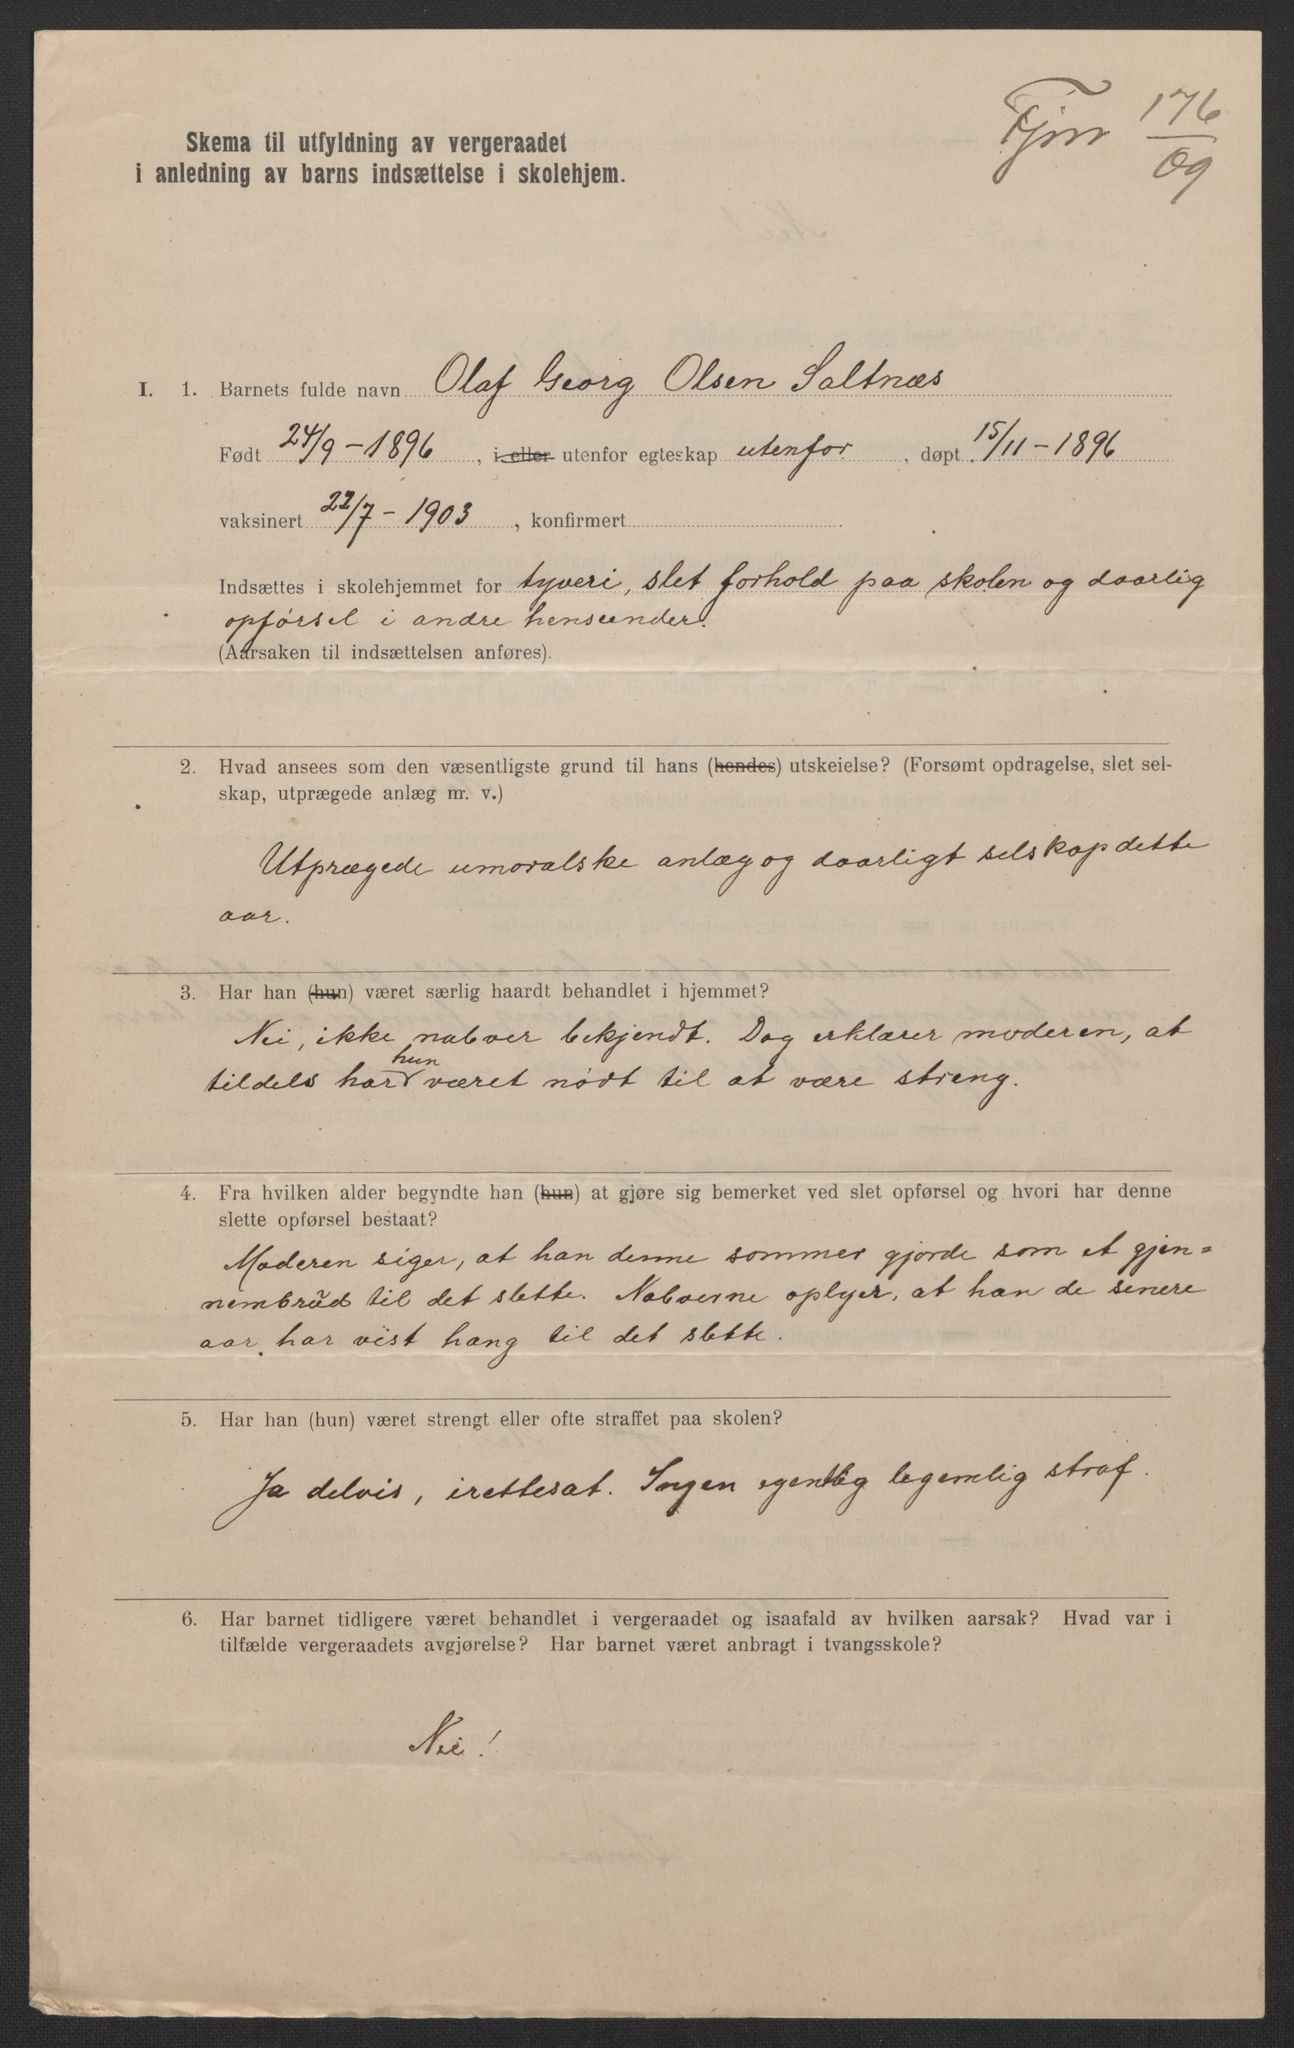 Fjm 176/09
Skema til utfyldning av vergeraadet
i anledning av barns indsættelse i skolehjem.
I. 1. Barnets fulde navn Olaf Georg Olsen Saltnæs
Født 24/9 - 1896, i eller utenfor egteskap utenfor, døpt 15/11 - 1896
vaksinert 22/7 - 1903, konfirmert
Indsættes i skolehjemmet for tyveri, slet forhold paa skolen og daarlig
opførsel i andre henseender.
(Aarsaken til indsættelsen anføres).
2. Hvad ansees som den væsentligste grund til hans (hendes) utskeielse? (Forsømt opdragelse, slet sel-
skap, utprægede anlæg m. v.)
Utprægede umoralske anlæg og daarligt selskap dette
aar.
3. Har han (hun) været særlig haardt behandlet i hjemmet?
Nei, ikke naboer bekjendt. Dog erklærer moderen, at
tildels har hun været nødt til at være streng.
4. Fra hvilken alder begyndte han (hun) at gjøre sig bemerket ved slet opførsel og hvori har denne
slette opførsel bestaat?
Moderen siger, at han denne sommer gjorde som et gjen=
nembrud til det slette. Naboerne oplyer, at han de senere
aar har vist hang til det slette.
5. Har han (hun) været strengt eller ofte straffet paa skolen?
Ja delvis, irettesat. Ingen egentlig legemlig straf.
6. Har barnet tidligere været behandlet i vergeraadet og isaafald av hvilken aarsak? Hvad var i
tilfælde vergeraadets avgjørelse? Har barnet været anbragt i tvangsskole?
Nei!